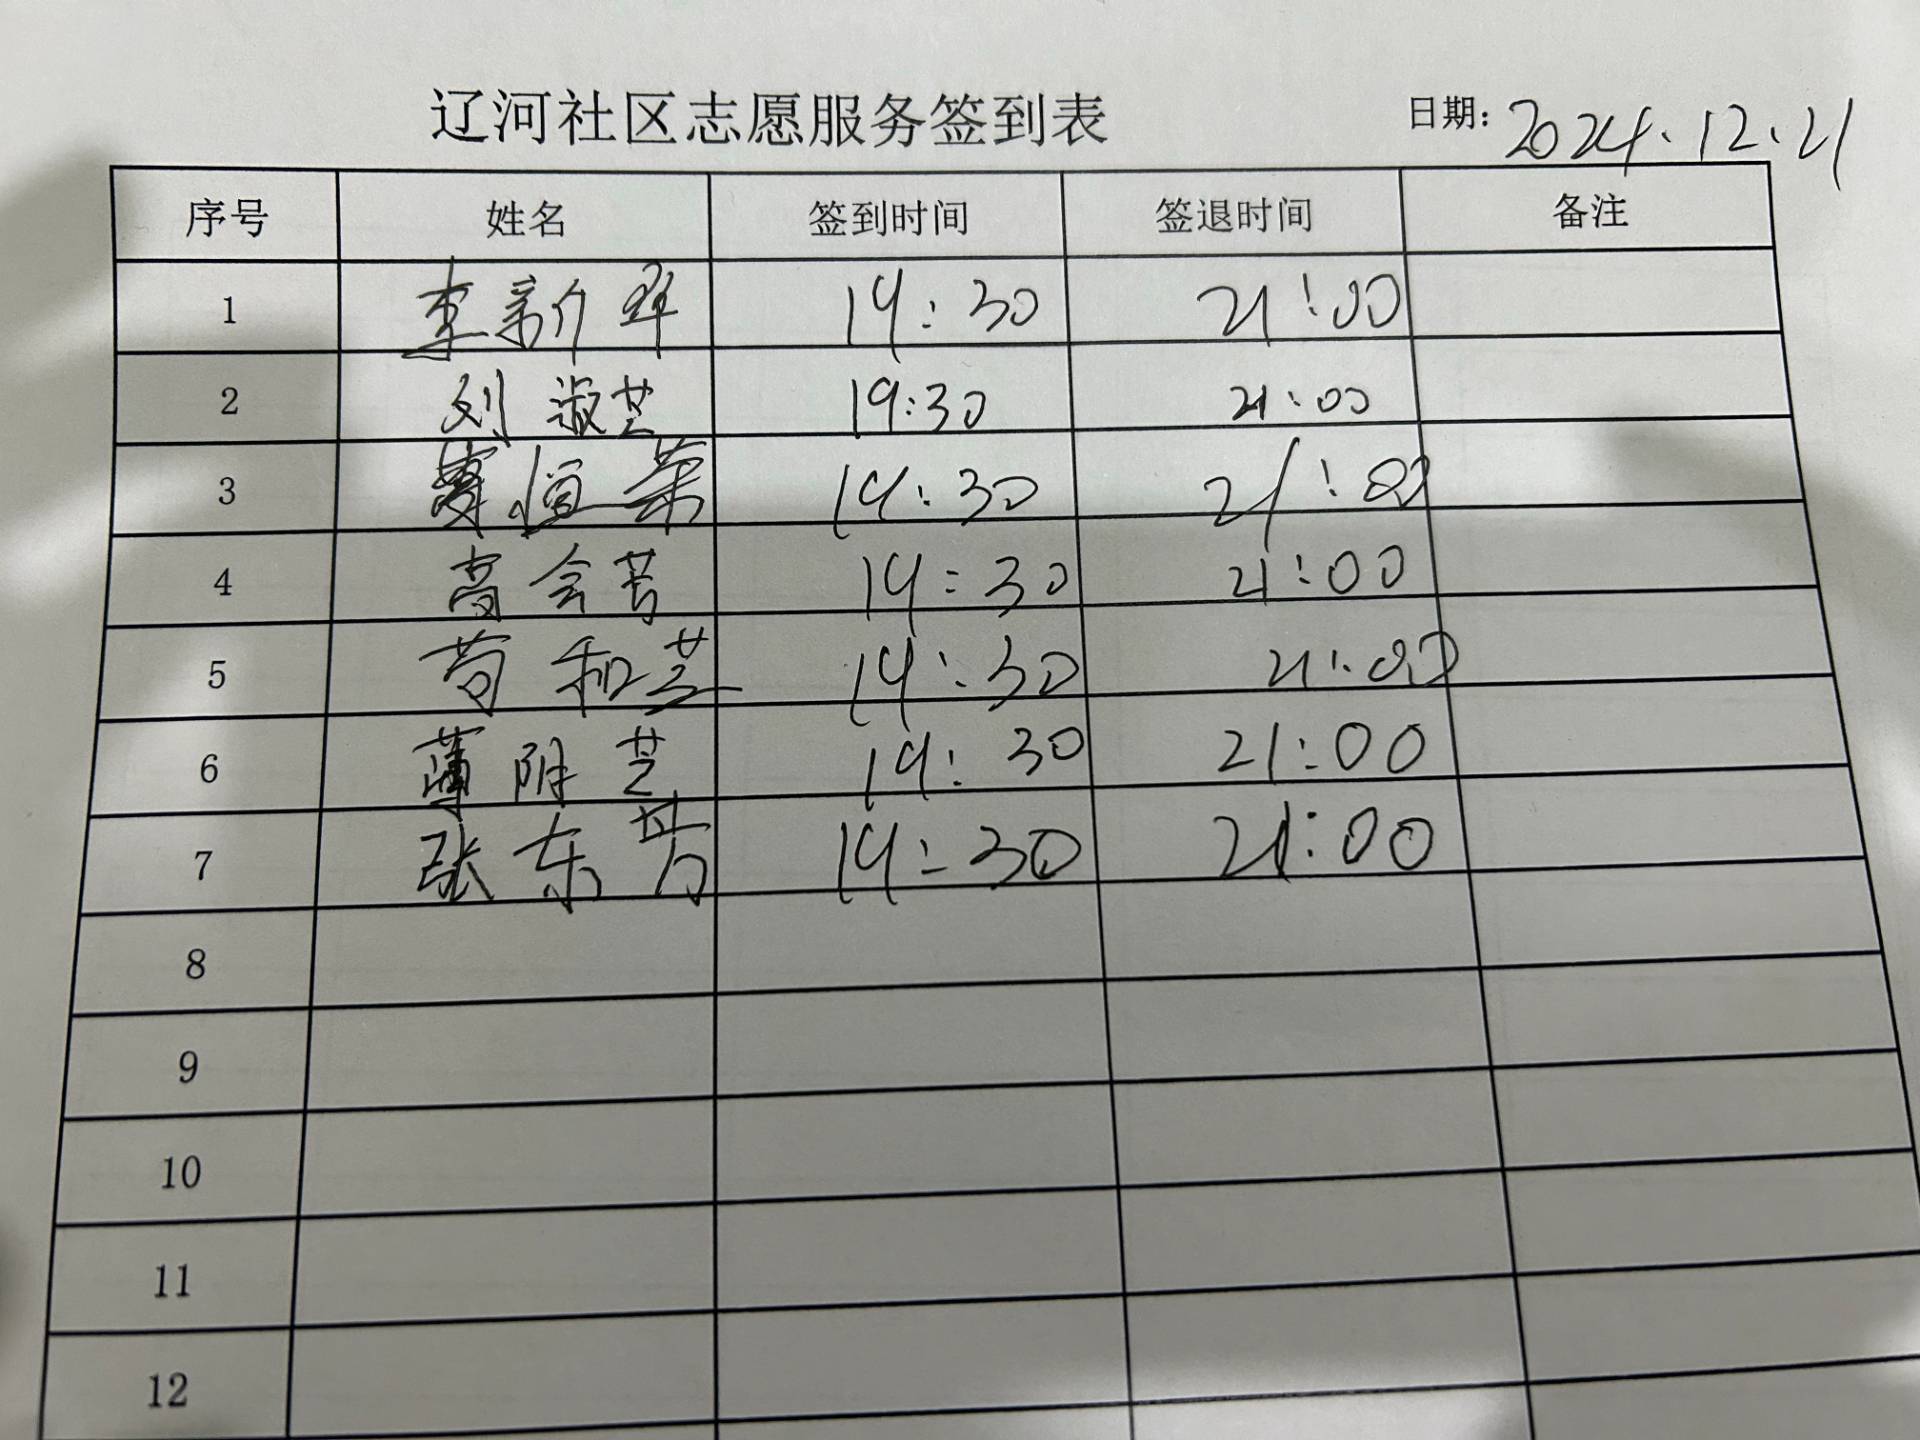 辽河社区志愿服务签到表 日期: 2024.12.21
序号 姓名 签到时间 签退时间 备注
1 李新华 19:30 21:00
2 刘淑芝 19:30 21:00
3 恒荣 19:30 21:00
4 高会芳 19:30 21:00
5 苟和芝 19:30 21:00
6 薄阴芝 19:30 21:00
7 张东芳 19:30 21:00
8
9
10
11
12